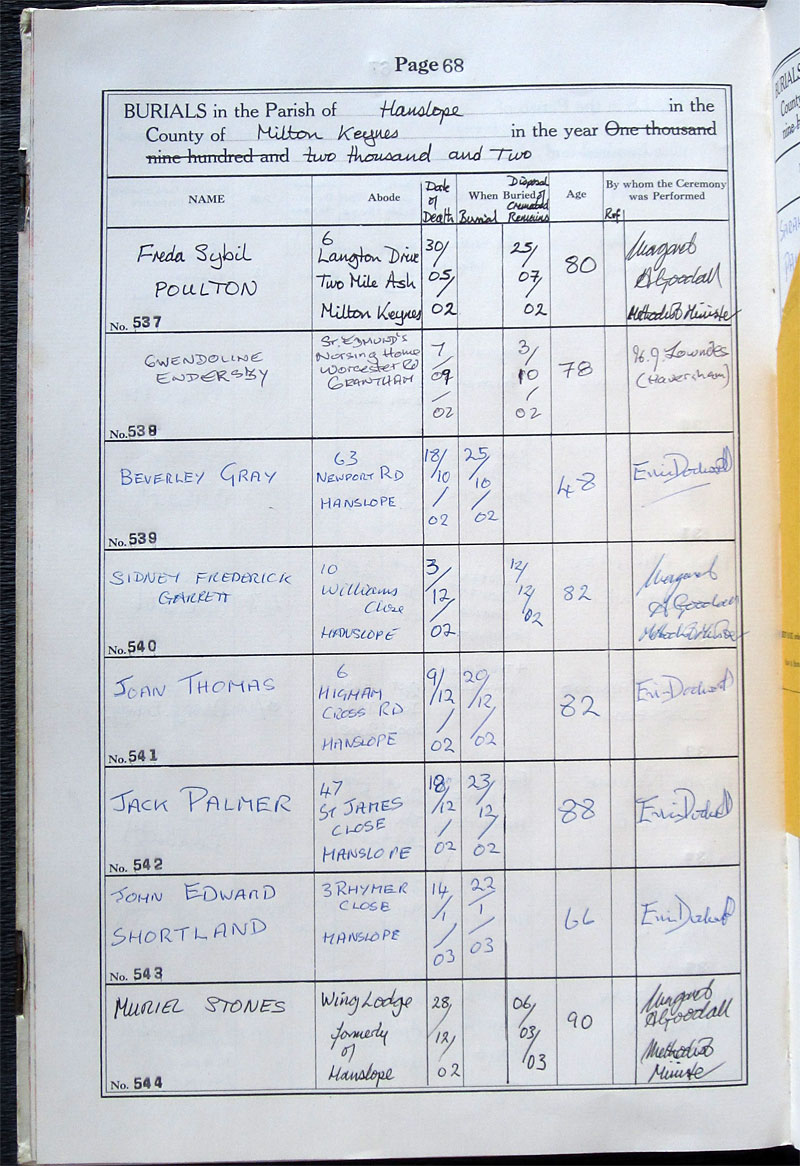 Page 68
BURIALS in the Parish of Hanslope in the
County of Milton Keynes in the year One thousand
nine hundred and two thousand and Two
NAME
Abode
Date of Death
When Buried
Burial
Disposal of Cremated Remains
Age
Ref
By whom the Ceremony was Performed
Freda Sybil
POULTON
No. 537
6
Langton Drive
Two Mile Ash
Milton Keynes
30/
05/
02
25/
07/
02
80
Margaret
A Goodall
Methodist Minister
GWENDOLINE
ENDERSBY
No. 538
St. EDMUND'S
Nursing Home
Worcester Rd
GRANTHAM
7
/
09
/
02
3/
10
/
02
78
Lowndes
(Haversham)
BEVERLEY GRAY
No. 539
63
NEWPORT RD
HANSLOPE
18/
10
/
02
25
/
10
/
02
48
SIDNEY FREDERICK
GARRETT
No. 540
10
Williams
Close
HANSLOPE
3/
12/
02
12/
12/
02
82
Margaret
A Goodall
Methodist Minister
JOAN THOMAS
No. 541
6
HIGHAM
CROSS RD
HANSLOPE
9/
12
/
02
20/
12
/
02
82
JACK PALMER
No. 542
47
ST JAMES
CLOSE
HANSLOPE
18/
12
/
02
23/
12
/
02
88
JOHN EDWARD
SHORTLAND
No. 543
3 RHYMER
CLOSE
HANSLOPE
14
/1
/
03
22
/
1
/
03
66
MURIEL STONES
No. 544
Wing Lodge
formerly
of
Hanslope
28/
12/
02
06/
03/
03
90
Margaret
A Goodall
Methodist
Minister